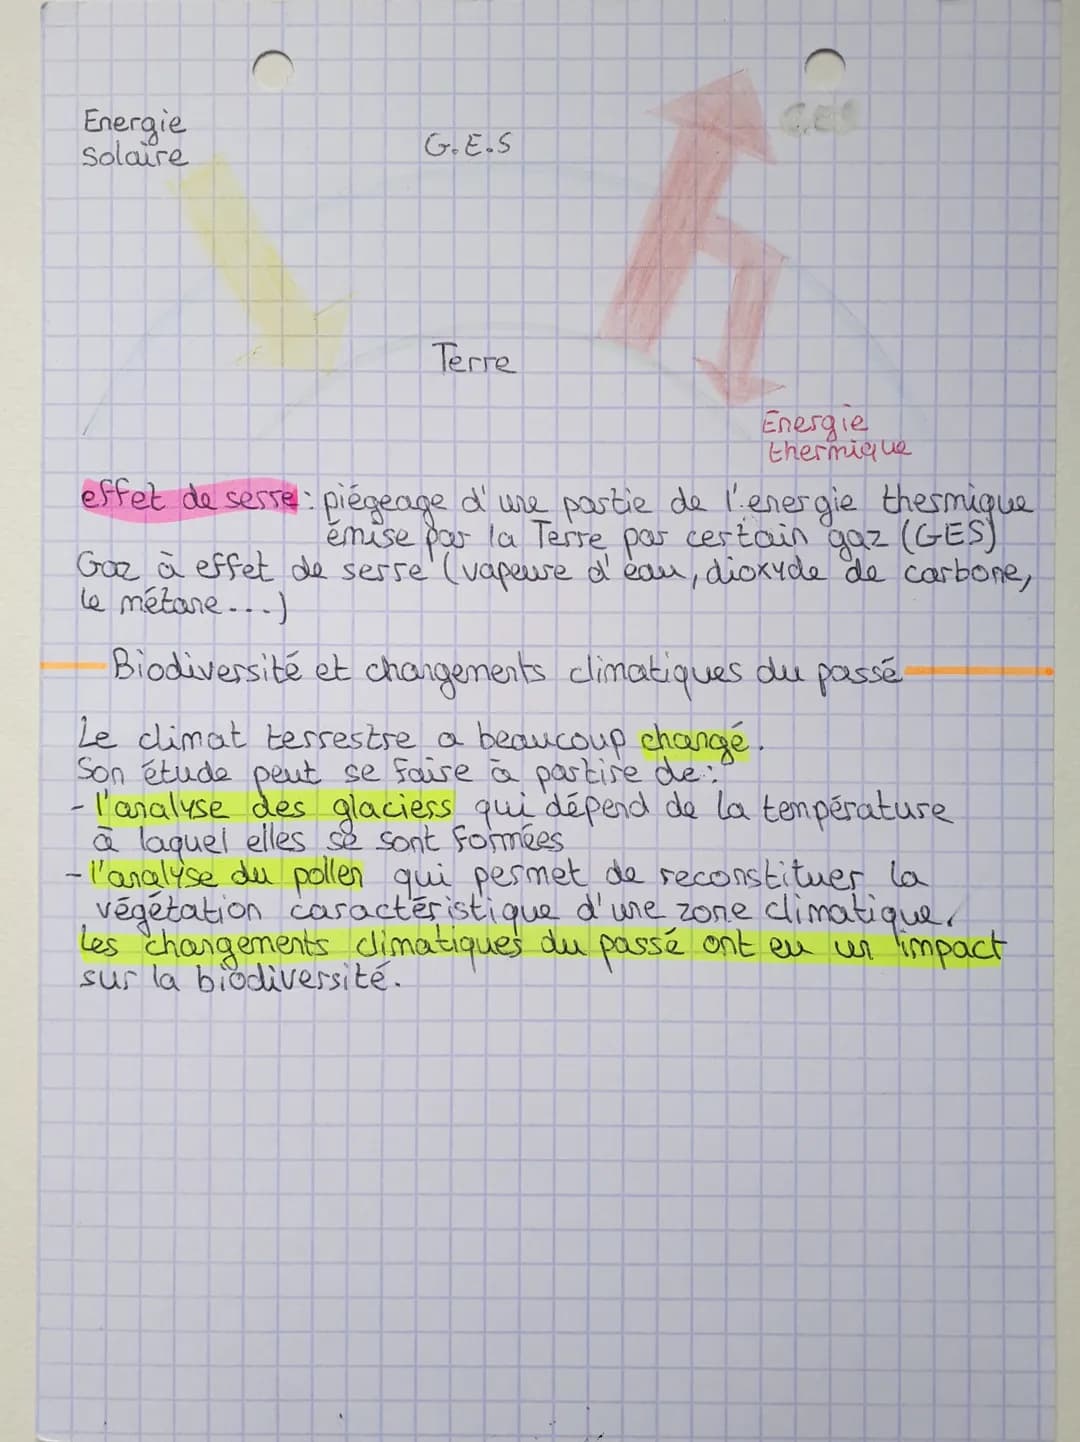 Energie
solaire
G.E.S
G.E.S
Terre
Energie
thermique
effet de serre : piégeage d'une partie de l'energie thermique
émise par la Terre par certain gaz (GES)
Gaz à effet de serre (vapeure d'eau, dioxyde de carbone,
le métane...)
Biodiversité et changements climatiques du passé
Le climat terrestre a beaucoup changé.
Son étude peut se faire à partire de :
- l'analyse des glaciers qui dépend de la température
à laquel elles se sont formées
- l'analyse du pollen qui permet de reconstituer la
végétation caractéristique d'une zone climatique.
Les changements climatiques du passé ont eu un impact
sur la biodiversité.